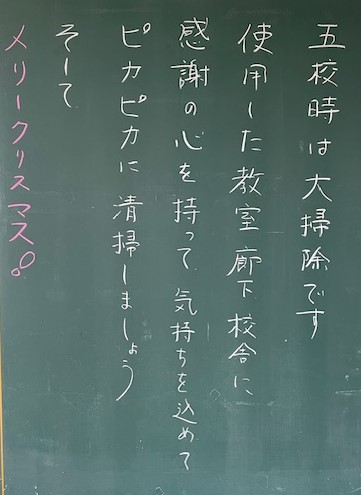 五校時は大掃除です
使用した教室廊下校舎に
感謝の心を持って気持ちを込めて
ピカピカに清掃しましょう
そして
メリークリスマス